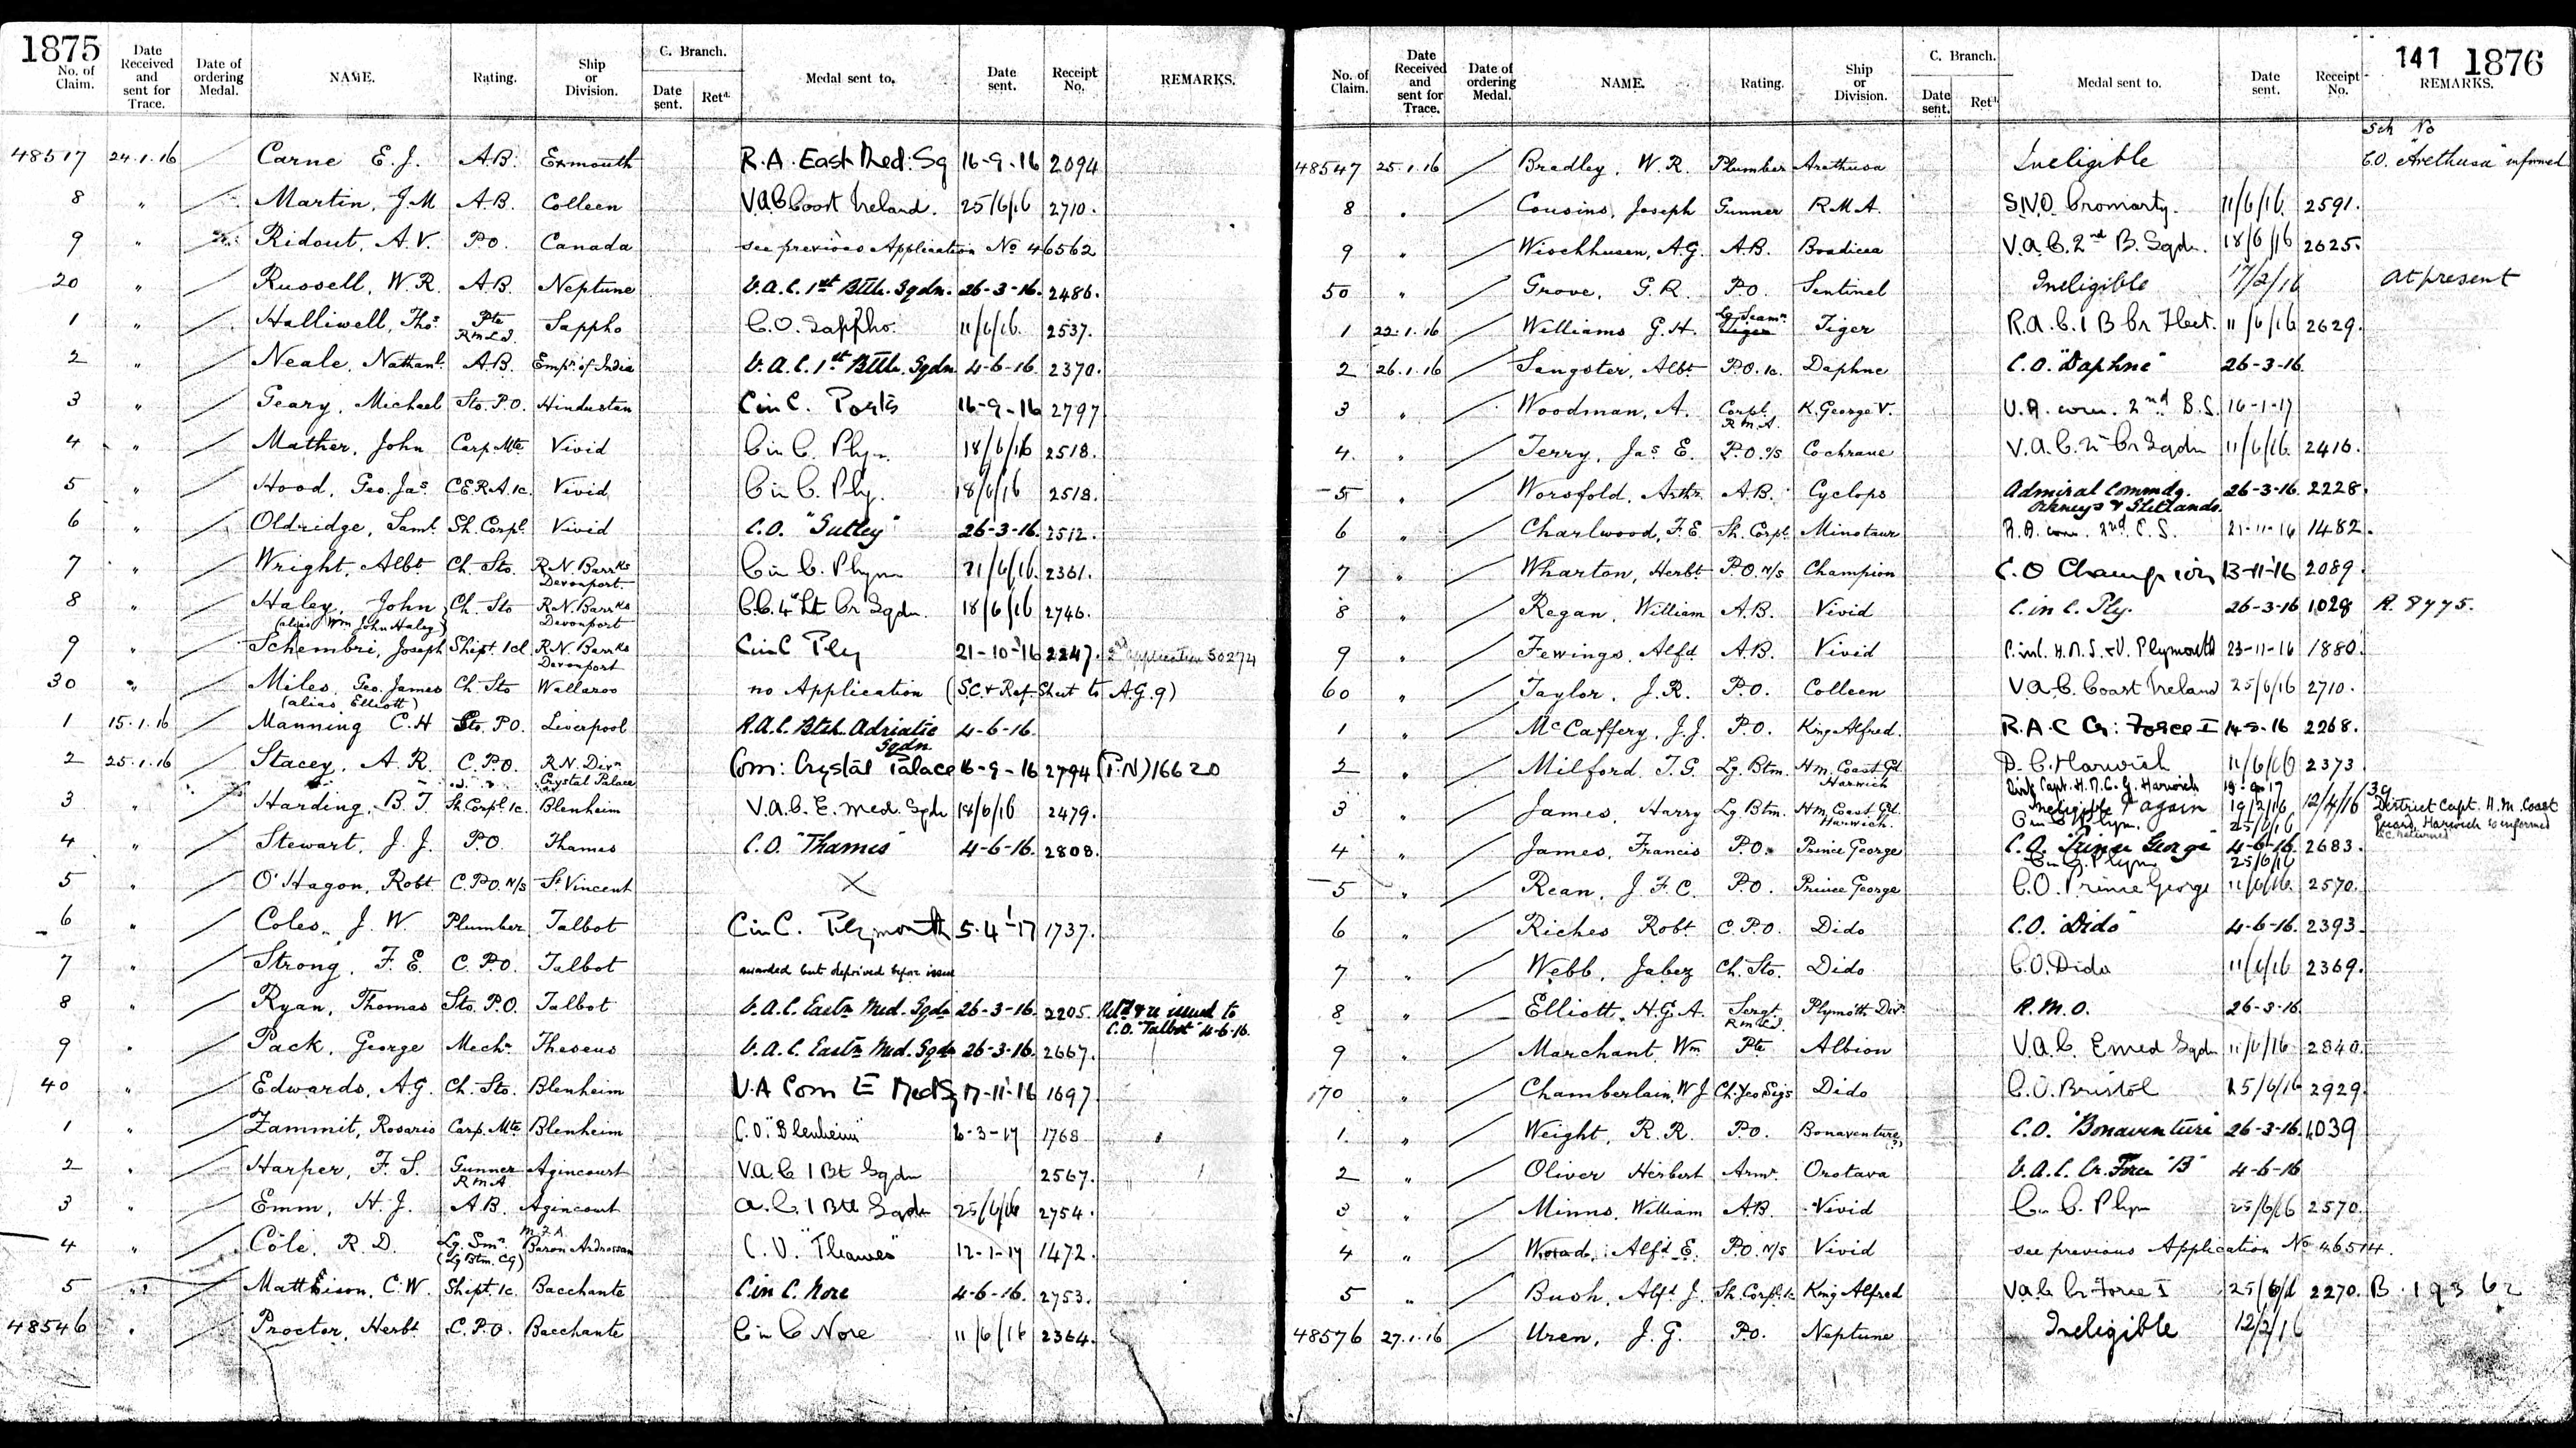 1875
No. of Claim. Date Received and sent for Trace. Date of ordering Medal. NAME. Rating. Ship or Division. C. Branch. Date sent. Retd. Medal sent to. Date sent. Receipt No. REMARKS.
48517 24.1.16 Carne E. J. A.B. Exmouth R.A. East Med: Sq 16-9-16 2094
8 " Martin, J. M A.B. Colleen V.A.C Coast Ireland. 25/6/16 2710.
9 " Ridout, A.V. P.O. Canada see previous Application No 46562
20 " Russell, W.R. A.B. Neptune V.A.C. 1st Bttle. Sqdn. 26-3-16. 2486.
1 " Halliwell, Thos. Pte R.M.L.I. Sappho C.O. Sappho. 11/6/16. 2537.
2 " Neale, Nathanl. A.B. Empr. of India V.A.C. 1st Bttle. Sqdn 4-6-16. 2370.
3 " Geary, Michael Sto. P.O. Hindustan C in C. Ports 16-9-16 2797
4 " Mather, John Carp. Mte Vivid C in C. Plym. 18/6/16 2518.
5 " Hood, Geo. Jas. C.E.R.A. 1c. Vivid C in C. Ply. 18/6/16 2518.
6 " Oldridge, Saml. Sh. Corpl. Vivid C.O. "Sutley" 26-3-16. 2512.
7 " Wright, Albt. Ch. Sto. R.N. Barrks Devonport. C in C. Plym 11/6/16. 2361.
8 " Haley, John (alias Wm John Haley) Ch. Sto R.N. Barrks Devonport C.C. 4th Lt Cr Sqdn. 18/6/16 2746.
9 " Schembri, Joseph Shipt. 1cl R.N. Barrks Devonport C in C Ply 21-10-16 2247. 2nd application 50274
30 " Miles, Geo. James (alias Elliott) Ch. Sto Wallaroo no Application (S.C. & Ref. Sheet to A.G.9)
1 15.1.16 Manning C.H Sto. P.O. Liverpool R.A.C. Btsh. Adriatic Sqdn 4-6-16.
2 25.1.16 Stacey, A. R. C.P.O. R.N. Divn Crystal Palace Com: Crystal Palace 16-9-16 2794 (P.N) 16620
3 " Harding, B. T. Sh. Corpl. 1c. Blenheim V.A.C. E. Med. Sqdn 18/6/16 2479.
4 " Stewart, J. J. P.O. Thames C.O. "Thames" 4-6-16. 2808.
5 " O'Hagon, Robt C.P.O. N/S St. Vincent X
6 " Coles, J. W. Plumber Talbot C in C. Plymouth 5.4-17 1737.
7 " Strong, F. E. C.P.O. Talbot awarded but deprived before issue
8 " Ryan, Thomas Sto. P.O. Talbot V.A.C. Eastn Med. Sqdn 26-3-16. 2205. Retd & re issued to C.O. "Talbot" 4-6-16.
9 " Pack, George Mechn. Theseus V.A.C. Eastn Med. Sqdn 26-3-16. 2667.
40 " Edwards, A.G. Ch. Sto. Blenheim V.A Com E Med Sq 17-11-16 1697
1 " Zammit, Rosario Carp. Mte Blenheim C.O. "Blenheim" 6-3-17 1768
2 " Harper, F. S. Gunner R.M.A Agincourt V.A.C 1 Bt Sqdn 2567.
3 " Emm, H. J. A.B. Agincourt A.C. 1 Btl Sqdn 25/6/16 2754.
4 " Cole, R. D. Lg. Smn. (Lg Btm. CG) M.F.A Baron Ardrossan C.O. "Thames" 12-1-17 1472.
5 " Matthison, C.W. Shipt. 1c. Bacchante C in C. Nore 4-6-16. 2753.
48546 " Proctor, Herbt. C.P.O. Bacchante C in C Nore 11/6/16 2364.
141 1876
No. of Claim. Date Received and sent for Trace. Date of ordering Medal. NAME. Rating. Ship or Division. C. Branch. Date sent. Retd. Medal sent to. Date sent. Receipt No. REMARKS.
48547 25.1.16 Bradley, W. R. Plumber Arethusa Ineligible Sch No C.O. "Arethusa" informed
8 " Cousins, Joseph Gunner R.M.A. S.N.O. Cromarty. 11/6/16. 2591.
9 " Wischhusen, A.G. A.B. Boadicea V.A.C. 2nd B. Sqdn. 18/6/16 2625.
50 " Grove, G. R. P.O. Sentinel Ineligible 17/2/16 at present
1 22.1.16 Williams G. H. Lg. Seamn Tiger R.A.C. 1 B Cr Fleet. 11/6/16 2629.
2 26.1.16 Sangster, Albt. P.O. 1c. Daphne C.O. "Daphne" 26-3-16.
3 " Woodman, A. Corpl. R.M.A. K. George V. V.A. com. 2nd B.S. 16-1-17
4. " Terry, Jas. E. P.O. N/S Cochrane V.A.C. 2nd Cr Sqdn 11/6/16. 2416.
5 " Worsfold, Arthr. A.B. Cyclops Admiral Commdg. Orkneys & Shetlands. 26-3-16. 2228.
6 " Charlwood, F. E Sh. Corpl. Minotaur R.A. com. 2nd C.S. 21-11-16 1482.
7 " Wharton, Herbt. P.O. N/S Champion C.O Champion 13-11-16 2089.
8 " Regan, William A.B. Vivid C. in C. Ply. 26-3-16 1028 R. 8775.
9 " Fewings, Alfd. A.B. Vivid C. in C. H.M.S. & V. Plymouth 23-11-16 1880.
60 " Taylor, J. R. P.O. Colleen V.A.C. Coast Ireland 25/6/16 2710.
1 " McCaffery, J. J. P.O. King Alfred. R.A.C Cr: Force I 14-9-16 2268.
2 " Milford T. G. Lg. Btm. Hm. Coast Gd. Harwich D. C. Harwich 11/6/16 2373
3 " James, Harry Lg. Btm. Hm. Coast Gd. Harwich. Dist. Capt. H.M.C.G. Harwich Ineligible again C in C Plym. 19/2/16 25/6/16 12/4/16 District Capt. H.M. Coast Guard, Harwich informed
4 " James, Francis P.O. Prince George C.O. "Prince George" C in C. Plym 4-6-16. 25/6/16 2683.
5 " Rean, J. F. C. P.O. Prince George C.O. Prince George 11/6/16. 2570.
6 " Riches Robt. C.P.O. Dido C.O. "Dido" 4-6-16. 2393.
7 " Webb, Jabez Ch. Sto. Dido C.O. Dido 11/6/16 2369.
8 " Elliott, H.G.A. Sergt. R.M.L.I. Plymoth Divn. R.M.O. 26-3-16.
9 " Marchant Wm Pte Albion V.A.C. E med Sqdn 11/6/16. 2840.
70 " Chamberlain, W J Ch. Yeo Sigs Dido C.O. Bristol 25/6/16 2929.
1. " Weight, R. R. P.O. Bonaventure C.O. "Bonaventure" 26-3-16. 1039
2 " Oliver Herbert Armr. Orotava V.A.C. Cr. Force "B" 4-6-16
3 " Minns, William A.B. Vivid C in C. Plym 25/6/16 2570.
4 " Alfd. E. P.O. N/S Vivid see previous Application No 46514.
5 " Bush, Alfd. J. Sh. Corpl. 1c King Alfred V.A.C Cr Force I 25/6/16 2270. B. 19362
48576 27.1.16 Uren, J. G. P.O. Neptune Ineligible 12/2/16